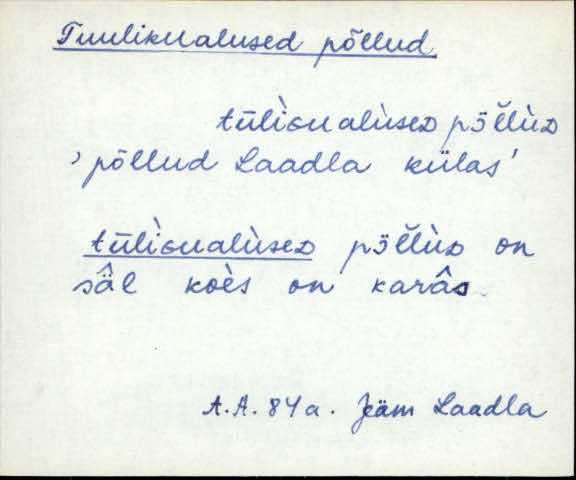 Tuulikualused põllud
tūlìɢualùseᴅ pɜ̆llùᴅ
'põllud Laadla külas'
tūlìɢualùseᴅ pɜ̆llùᴅ on
sâ̈l koès on karâs
A.A. 84 a. Jäm Laadla